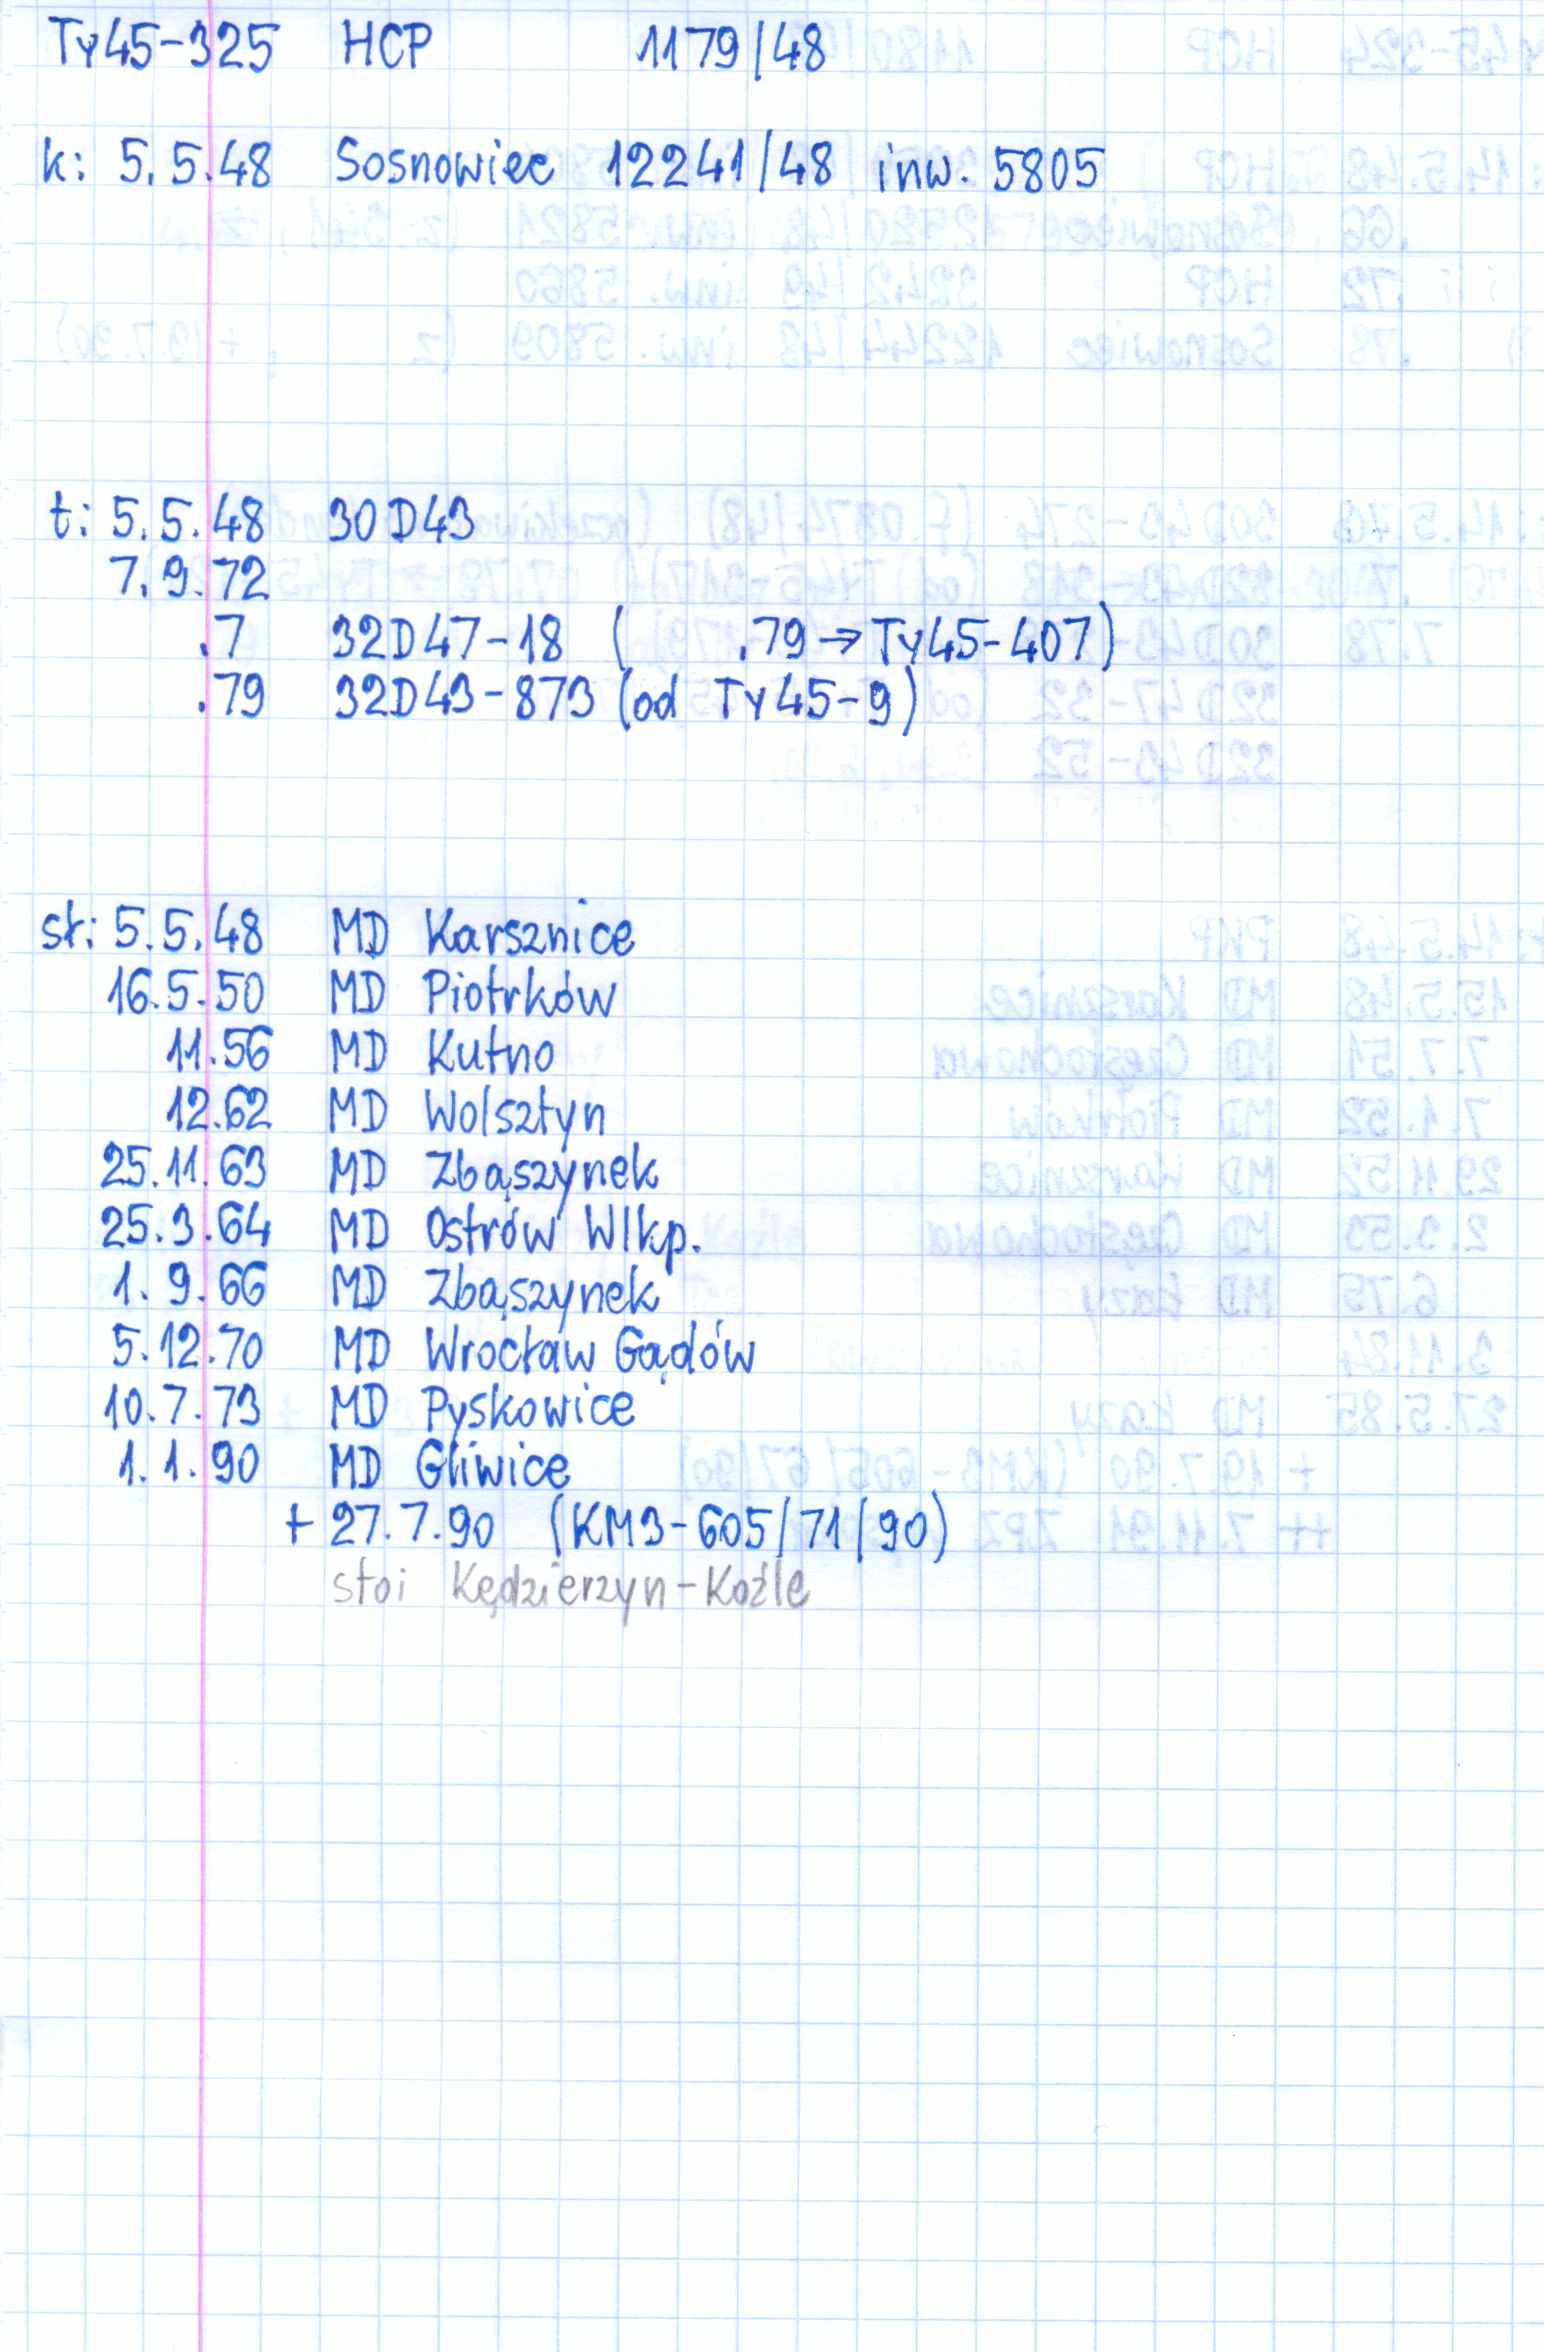 Ty45-325 HCP 1179/48
k: 5.5.48 Sosnowiec 12241/48 inw. 5805
t: 5.5.48 30D43
7.9.72
.7 32D47-18 ( .79 → Ty45-407)
.79 32D43-873 (od Ty45-9)
st: 5.5.48 MD Karsznice
16.5.50 MD Piotrków
11.56 MD Kutno
12.62 MD Wolsztyn
25.11.63 MD Zbąszynek
25.3.64 MD Ostrów Wlkp.
1.9.66 MD Zbąszynek
5.12.70 MD Wrocław Gądów
10.7.73 MD Pyskowice
1.1.90 MD Gliwice
+ 27.7.90 (KM3-605/71/90)
stoi Kędzierzyn-Koźle